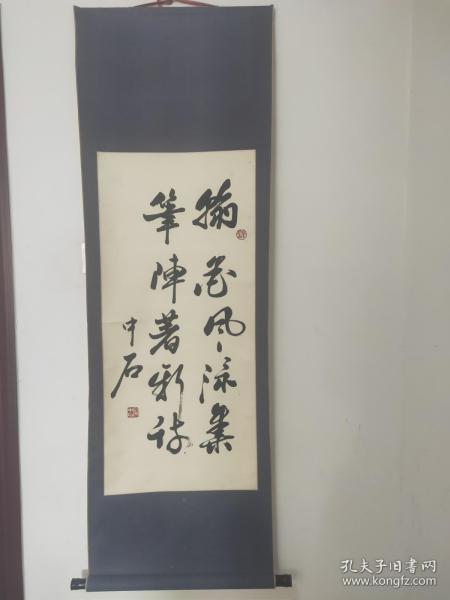 翰墨风流集
筆陣著新詩
中石
孔夫子旧书网
www.kongfz.com